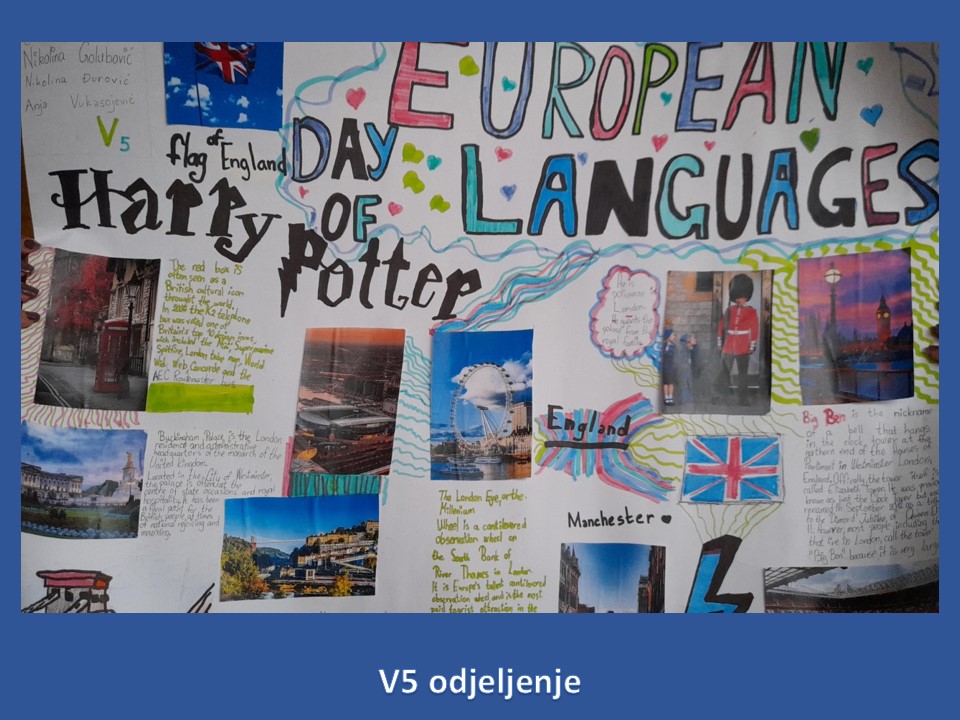 Nikolina Golubović
Nikolina Đurović
Anja Vukasojević
V5
flag of England
EUROPEAN
DAY
OF LANGUAGES
Harry
Potter
The red box is
often seen as a
British cultural icon
throught the world.
In the K2 telephone
box was voted one of
Britain's top 10
wich included the
Spitfire, London tube map, World
Wid Web, Concorde and the
AEC Routemaster bus
Buckingham Palace is the London
residence and administrative
headquarters of the monarch of the
United Kingdom.
Located in the City of Westminster,
the palace is often at the
centre of state occasions and royal
hospitality. It has been
a focal point for the
British people at times
of national rejoicing and
mourning.
The London Eye, or the
Millenium
Wheel is a cantilevered
observation wheel on
the South Bank of
River Thames in London.
It is Europe's tallest cantilevered
observation wheel and is the most
paid tourist attraction in the
He is
in
London.
He
royal family.
England
Manchester
Big Ben is the nickname
of a bell that hangs
in the clock tower at the
end of the Houses of
Parliament in Westminster London,
England. Officially, the tower itself is
called Elizabeth Tower. It was
known as just the Clock Tower but was
renamed in September
to the Diamond Jubilee of
II. However, most people including
that live in London, call the tower
"Big Ben" because it is very large
V5 odjeljenje